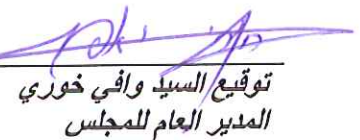 توقيع السيد وافي خوري
المدير العام للمجلس